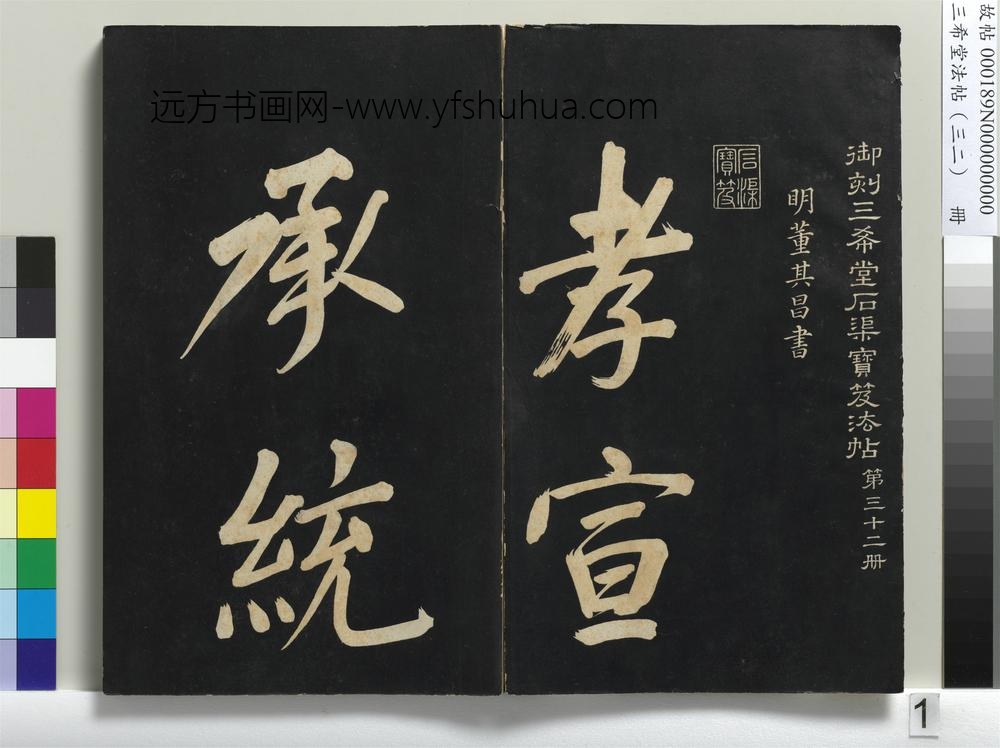 故帖 000189N000000000
三希堂法帖（三二） 冊
御刻三希堂石渠寶笈法帖 第三十二冊
明董其昌書
石渠寶笈
孝宣
承統
远方书画网-www.yfshuhua.com
1